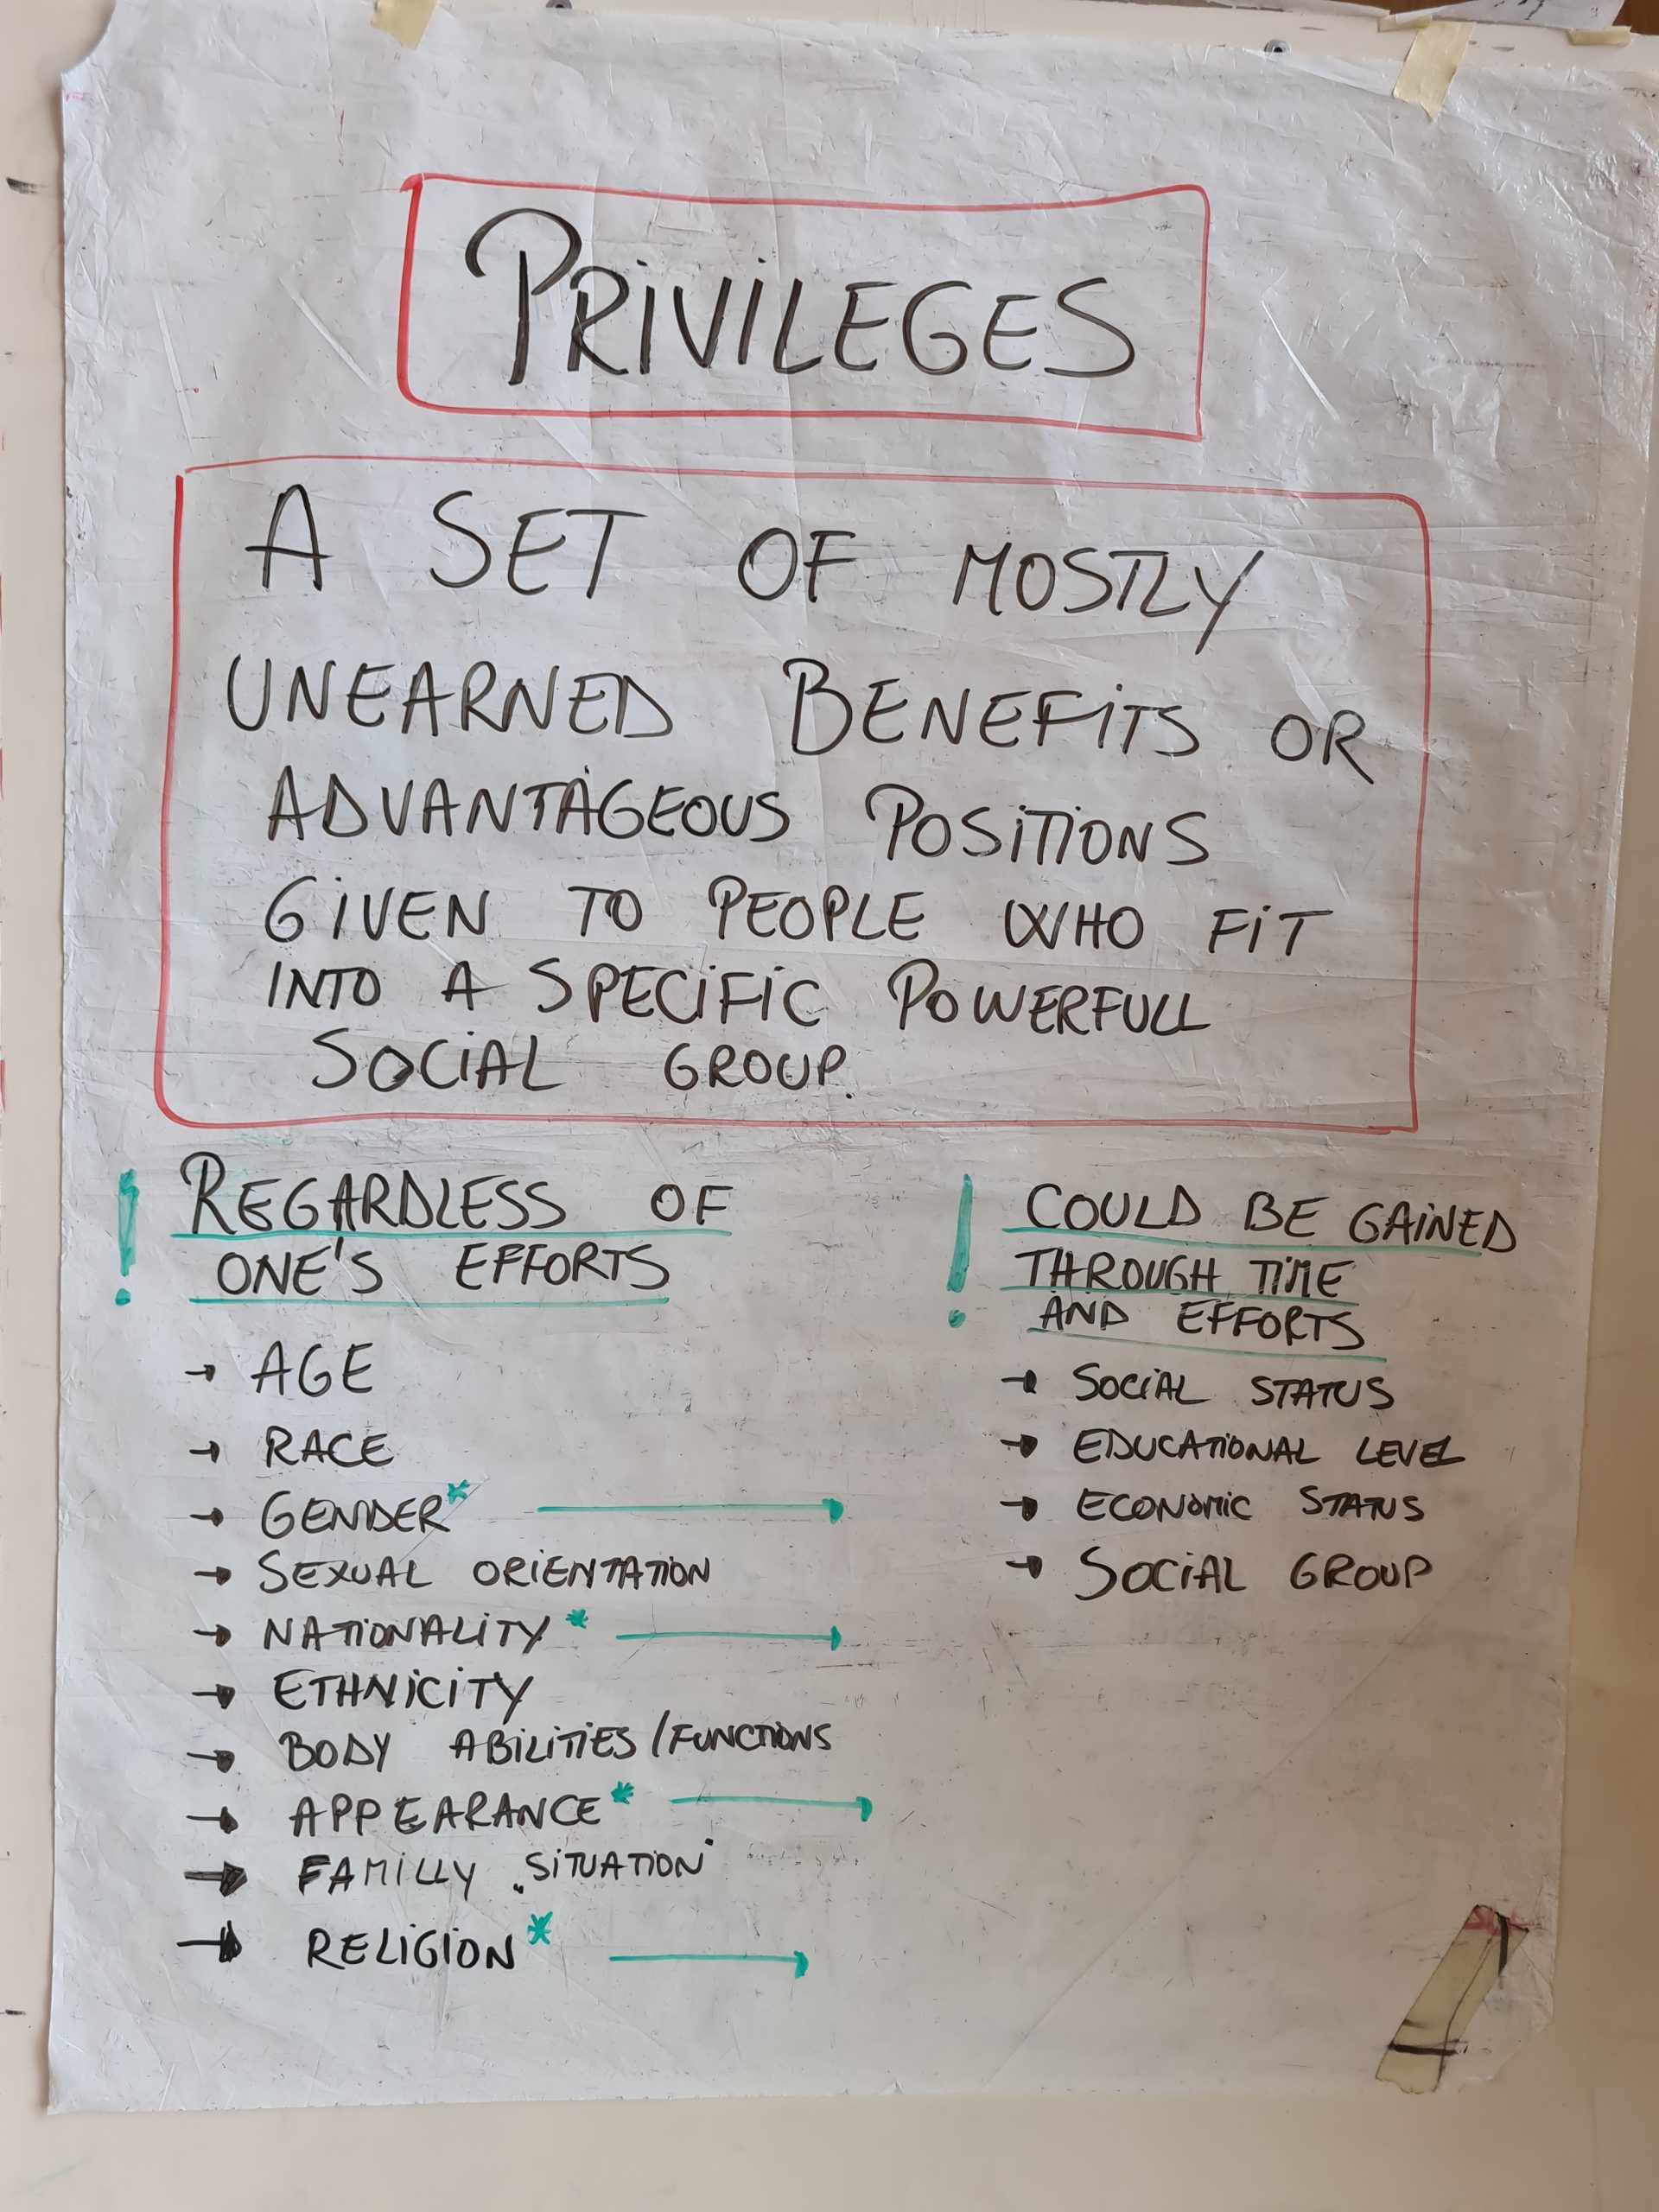 PRIVILEGES
A SET OF MOSTLY
UNEARNED BENEFITS OR
ADVANTAGEOUS POSITIONS
GIVEN TO PEOPLE WHO FIT
INTO A SPECIFIC POWERFULL
SOCIAL GROUP.
! REGARDLESS OF
ONE'S EFFORTS
→ AGE
→ RACE
→ GENDER* →
→ SEXUAL ORIENTATION
→ NATIONALITY* →
→ ETHNICITY
→ BODY ABILITIES/FUNCTIONS
→ APPEARANCE* →
→ FAMILLY „SITUATION"
→ RELIGION* →
! COULD BE GAINED
THROUGH TIME
AND EFFORTS
→ SOCIAL STATUS
→ EDUCATIONAL LEVEL
→ ECONOMIC STATUS
→ SOCIAL GROUP